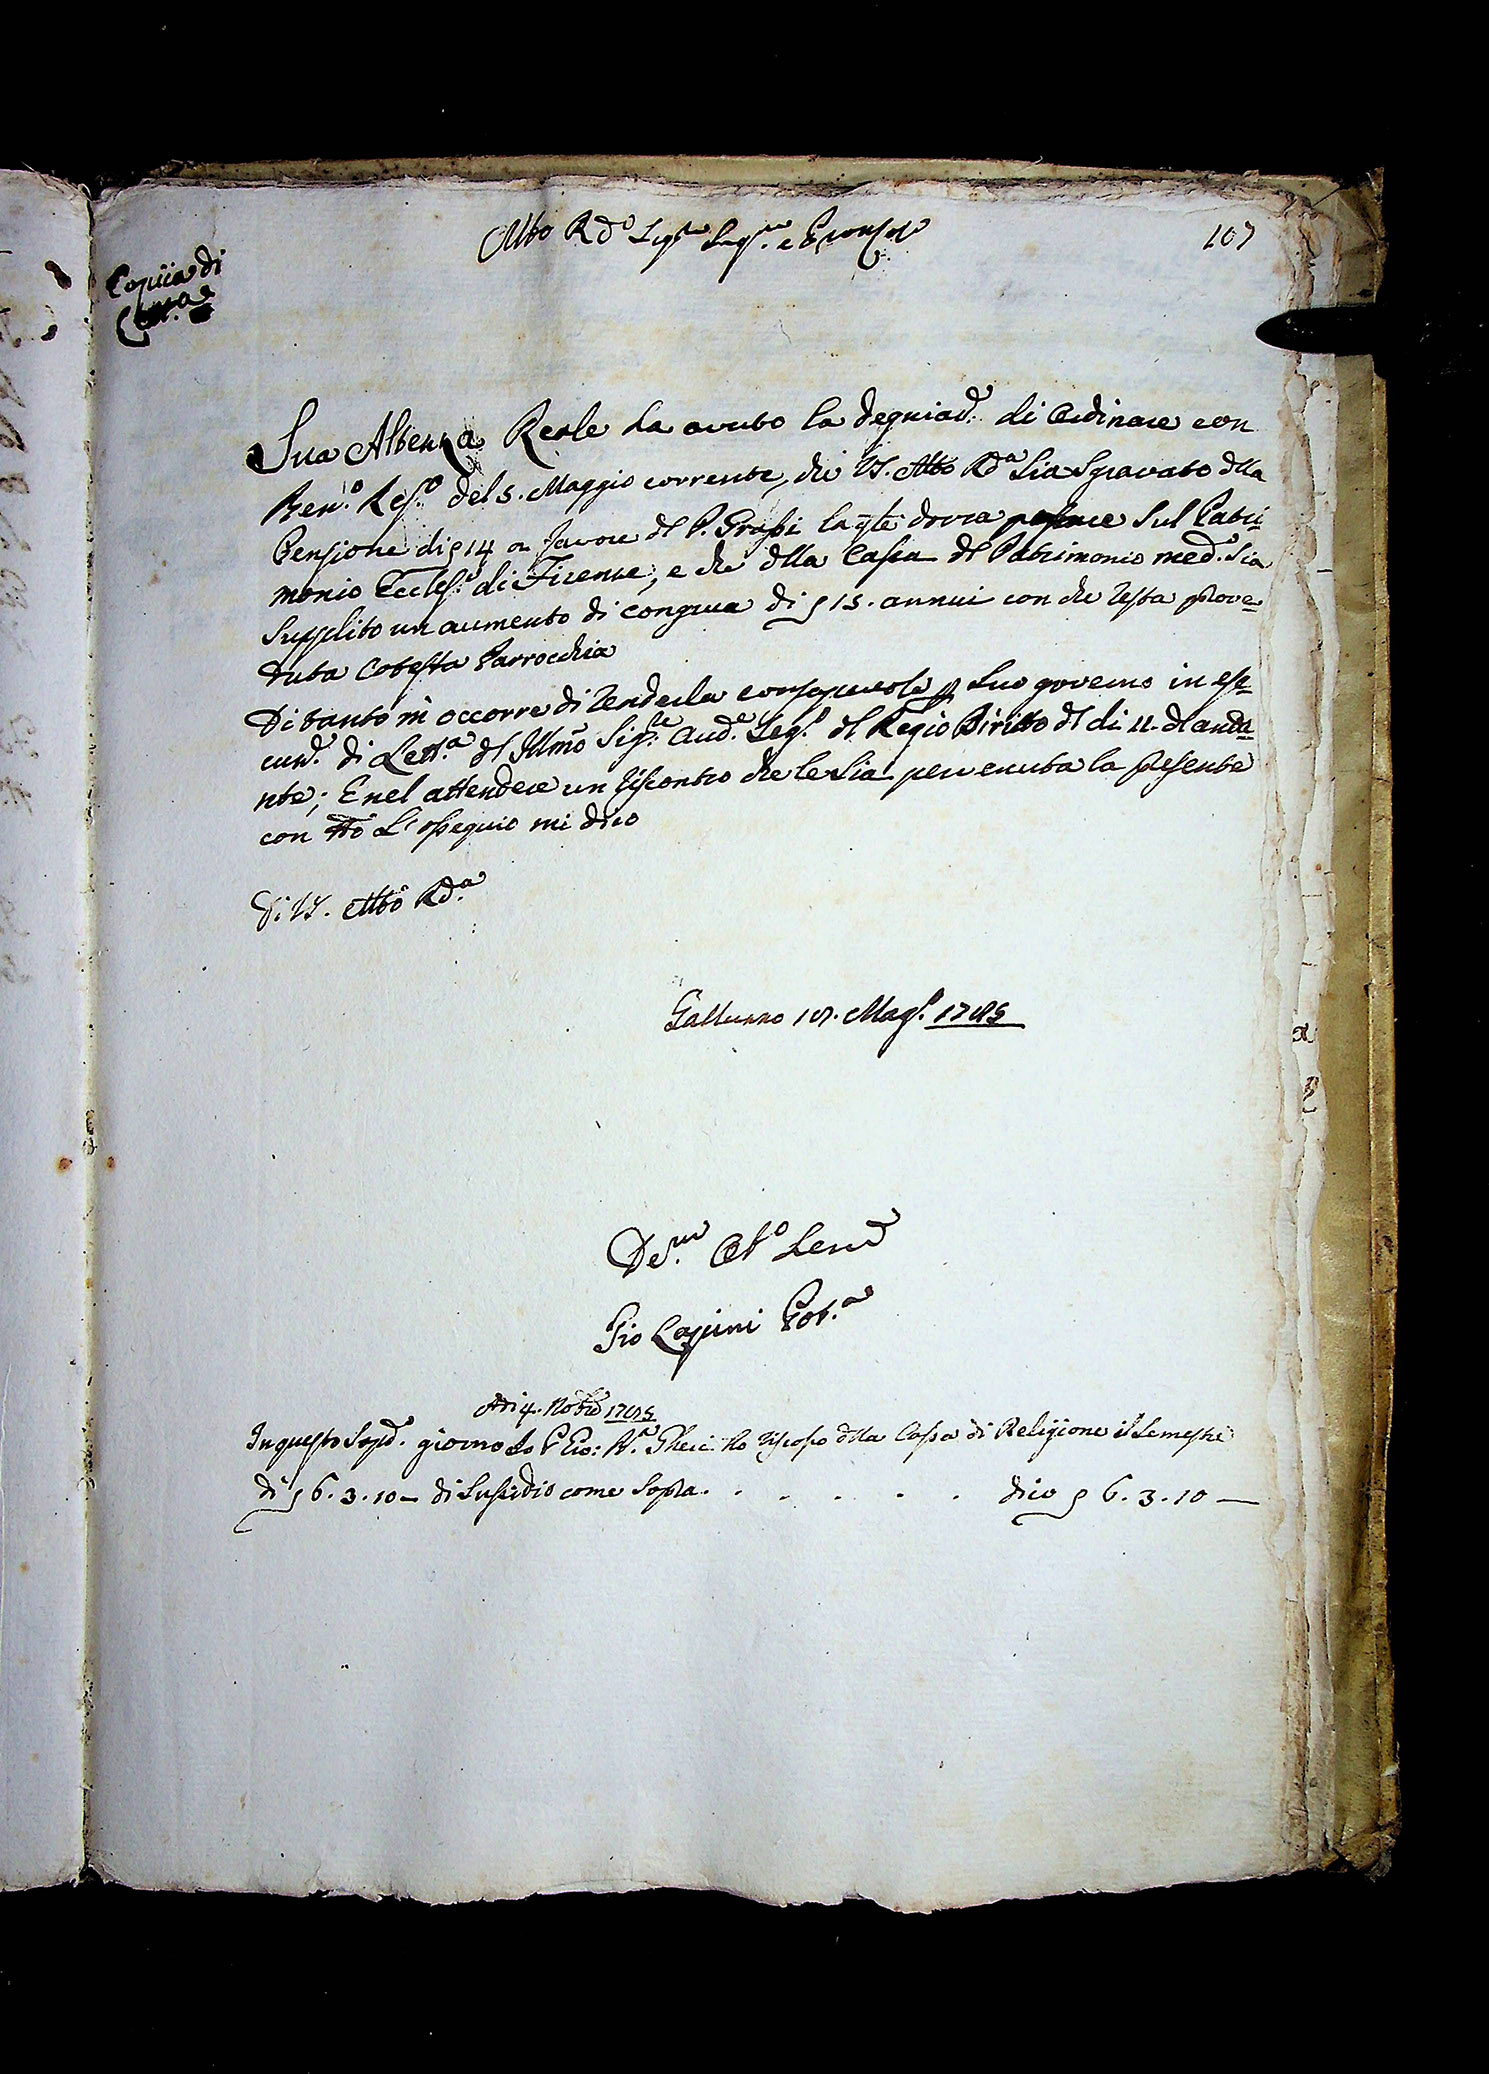 Molto Rdo Sigre Sigre e Pron Col.
107
Copiia di
Sua Altezza Reale ha avuto la degniaz.e di Ordinare con
Ben.o Resc.o del 5. Maggio corrente, che VS. Molto Rda Sia Sgravato dlla
Pensione di ʃ 14 a favore dl P. Grassi la qle dovrà posare Sul Patri
monio Eccles.o di Firenze, e che dlla Cassa dl Patrimonio med.o Sia
Supplito un aumento di congrua di ʃ 15. annui con che resta prove
duta Cotesta Parrocchia
Di tanto mi occorre di renderla consapevole p Suo governo in ese
cuz.e di Lett.a dl Illmo Sig.re Aud.e Seg.o dl Regio Diritto dl di 11. dl anda
nte; E nel attendere un riscontro che le Sia pervenuta la presente
con tto L'ossequio mi dico
Di VS. Molto Rd.a
Galluzzo 18. Mag.o 1785
De.mo Ob.o Serve
Gio Lapini Pot.a
Adi 4. Nobre 1785
In questo Sopd.o giorno Io P Gio: B.a Gheri ho riscosso dlla Cassa di Religione il Semestre
di ʃ 6. 3. 10 — di Sussidio come Sopra. . . . . . . dico ʃ 6. 3. 10 —